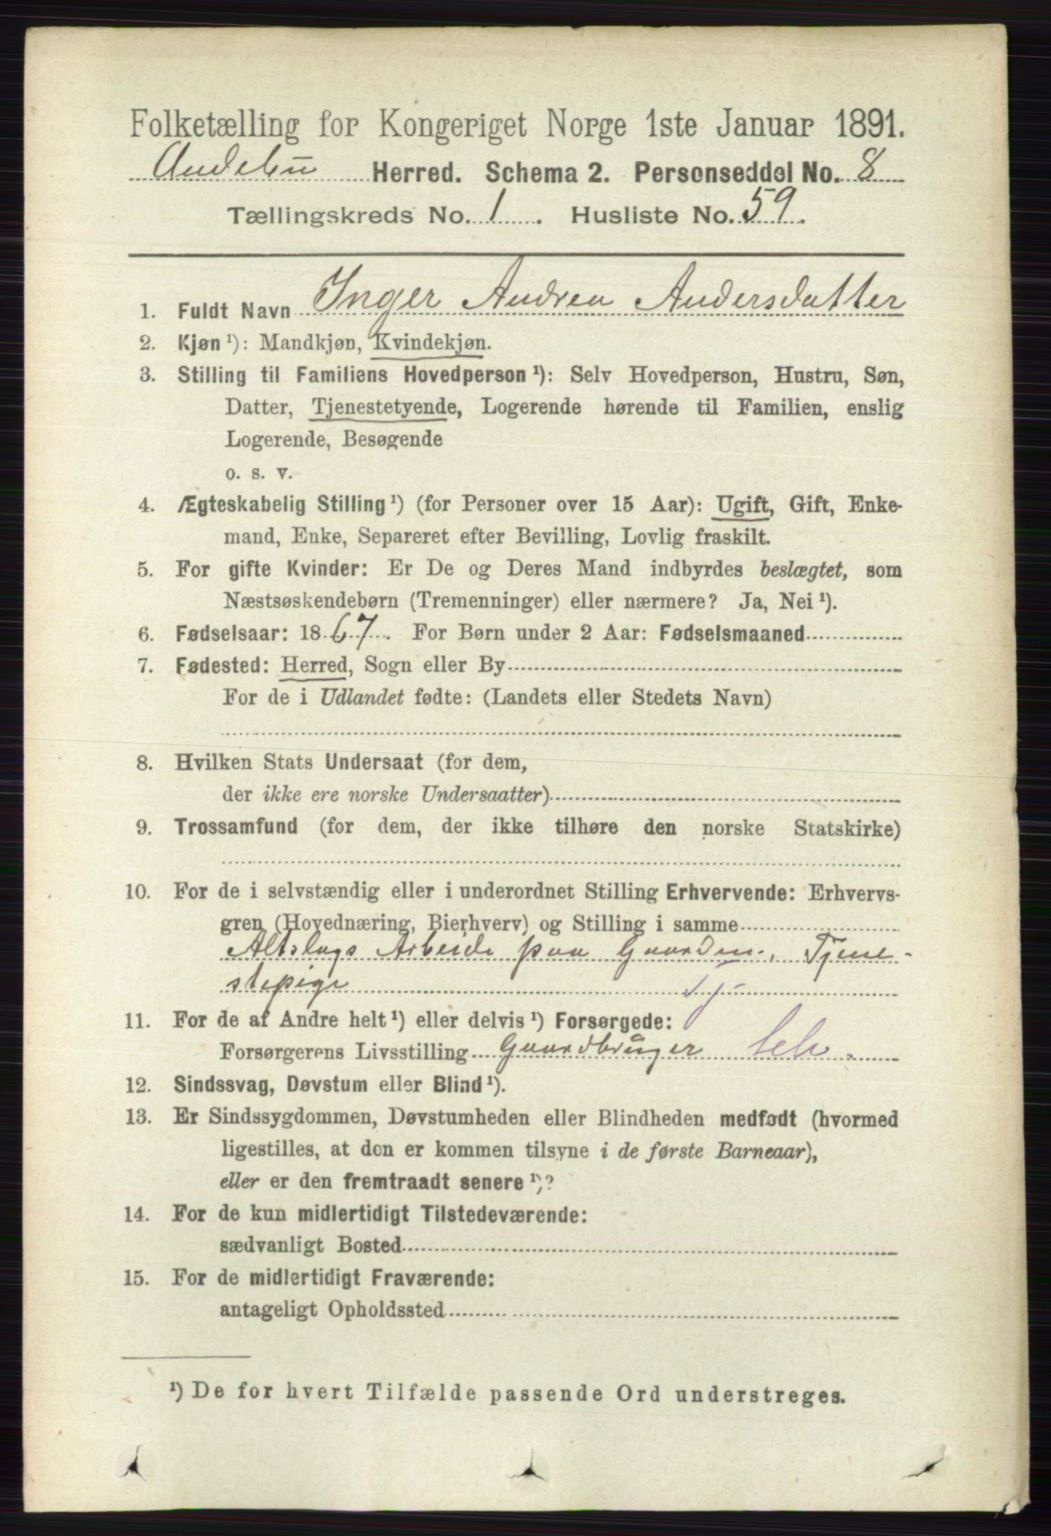 Folketælling for Kongeriget Norge 1ste Januar 1891.
Andebu Herred. Schema 2. Personseddel No. 8
Tællingskreds No. 1. Husliste No. 59.
1. Fuldt Navn Inger Andrea Andersdatter
2. Kjøn ¹): Mandkjøn, Kvindekjøn.
3. Stilling til Familiens Hovedperson ¹): Selv Hovedperson, Hustru, Søn,
Datter, Tjenestetyende, Logerende hørende til Familien, enslig
Logerende, Besøgende
o. s. v.
4. Ægteskabelig Stilling ¹) (for Personer over 15 Aar): Ugift, Gift, Enke-
mand, Enke, Separeret efter Bevilling, Lovlig fraskilt.
5. For gifte Kvinder: Er De og Deres Mand indbyrdes beslægtet, som
Næstsøskendebørn (Tremenninger) eller nærmere? Ja, Nei ¹).
6. Fødselsaar: 1867. For Børn under 2 Aar: Fødselsmaaned
7. Fødested: Herred, Sogn eller By
For de i Udlandet fødte: (Landets eller Stedets Navn)
8. Hvilken Stats Undersaat (for dem,
der ikke ere norske Undersaatter)
9. Trossamfund (for dem, der ikke tilhøre den norske Statskirke)
10. For de i selvstændig eller i underordnet Stilling Erhvervende: Erhvervs-
gren (Hovednæring, Bierhverv) og Stilling i samme
Altslags Arbeide paa Gaarden. Tjene-
stepige Tj-
11. For de af Andre helt ¹) eller delvis ¹) Forsørgede:
Forsørgerens Livsstilling Gaardbruger
12. Sindssvag, Døvstum eller Blind ¹).
13. Er Sindssygdommen, Døvstumheden eller Blindheden medfødt (hvormed
ligestilles, at den er kommen tilsyne i de første Barneaar),
eller er den fremtraadt senere ¹)?
14. For de kun midlertidigt Tilstedeværende:
sædvanligt Bosted
15. For de midlertidigt Fraværende:
antageligt Opholdssted
¹) De for hvert Tilfælde passende Ord understreges.